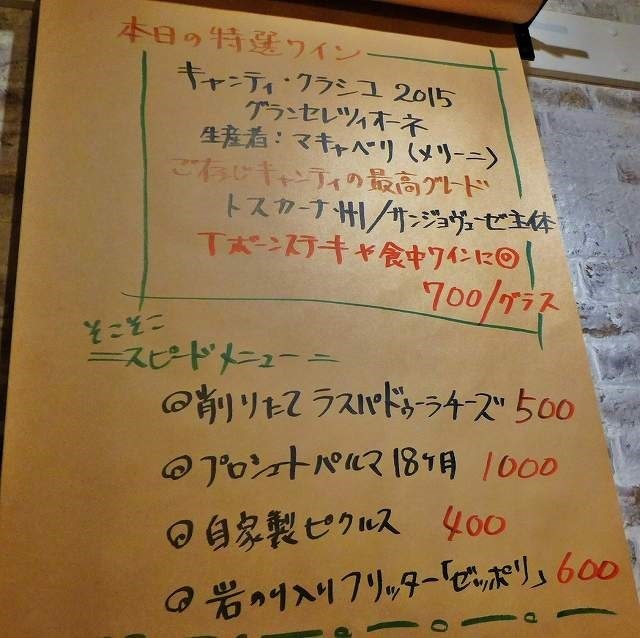 本日の特選ワイン
キャンティ・クラシコ 2015
グランセレツィオーネ
生産者：マキャベリ（メリーニ）
ご存じキャンティの最高グレード
トスカーナ州/サンジョヴェーゼ主体
Tボーンステーキや食中ワインに◎
700/グラス
そこそこ
=スピードメニュー=
◎削りたて ラスパドゥーラチーズ 500
◎プロシュートパルマ 18ケ月 1000
◎自家製ピクルス 400
◎岩のり入りフリッター「ゼッポリ」 600